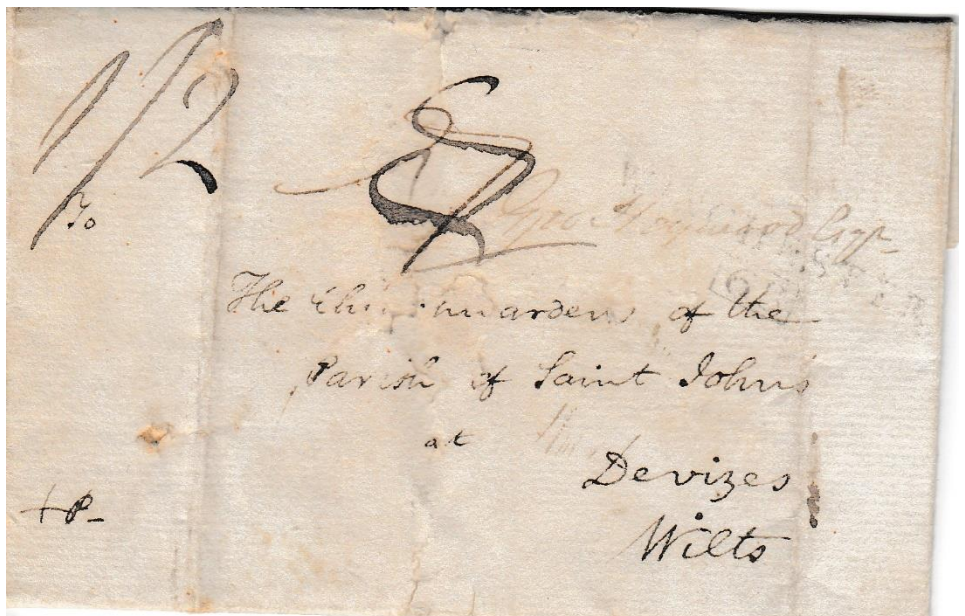 1/2
8
To
Esqr
The Churchwardens of the
Parish of Saint Johns
at
Devizes
Wilts